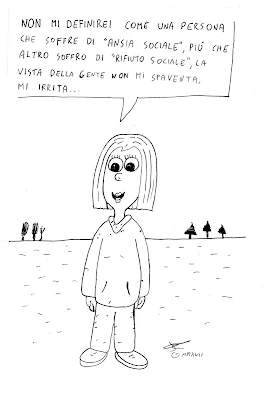 NON MI DEFINIREI COME UNA PERSONA
CHE SOFFRE DI "ANSIA SOCIALE", PIÚ CHE
ALTRO SOFFRO DI "RIFIUTO SOCIALE", LA
VISTA DELLA GENTE NON MI SPAVENTA,
MI IRRITA...